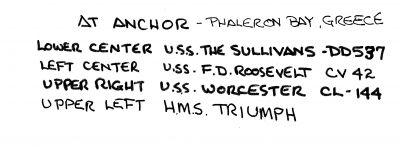 AT ANCHOR - PHALERON BAY, GREECE
LOWER CENTER U.S.S. THE SULLIVANS - DD537
LEFT CENTER U.S.S. F.D. ROOSEVELT CV 42
UPPER RIGHT U.S.S. WORCESTER CL-144
UPPER LEFT H.M.S. TRIUMPH